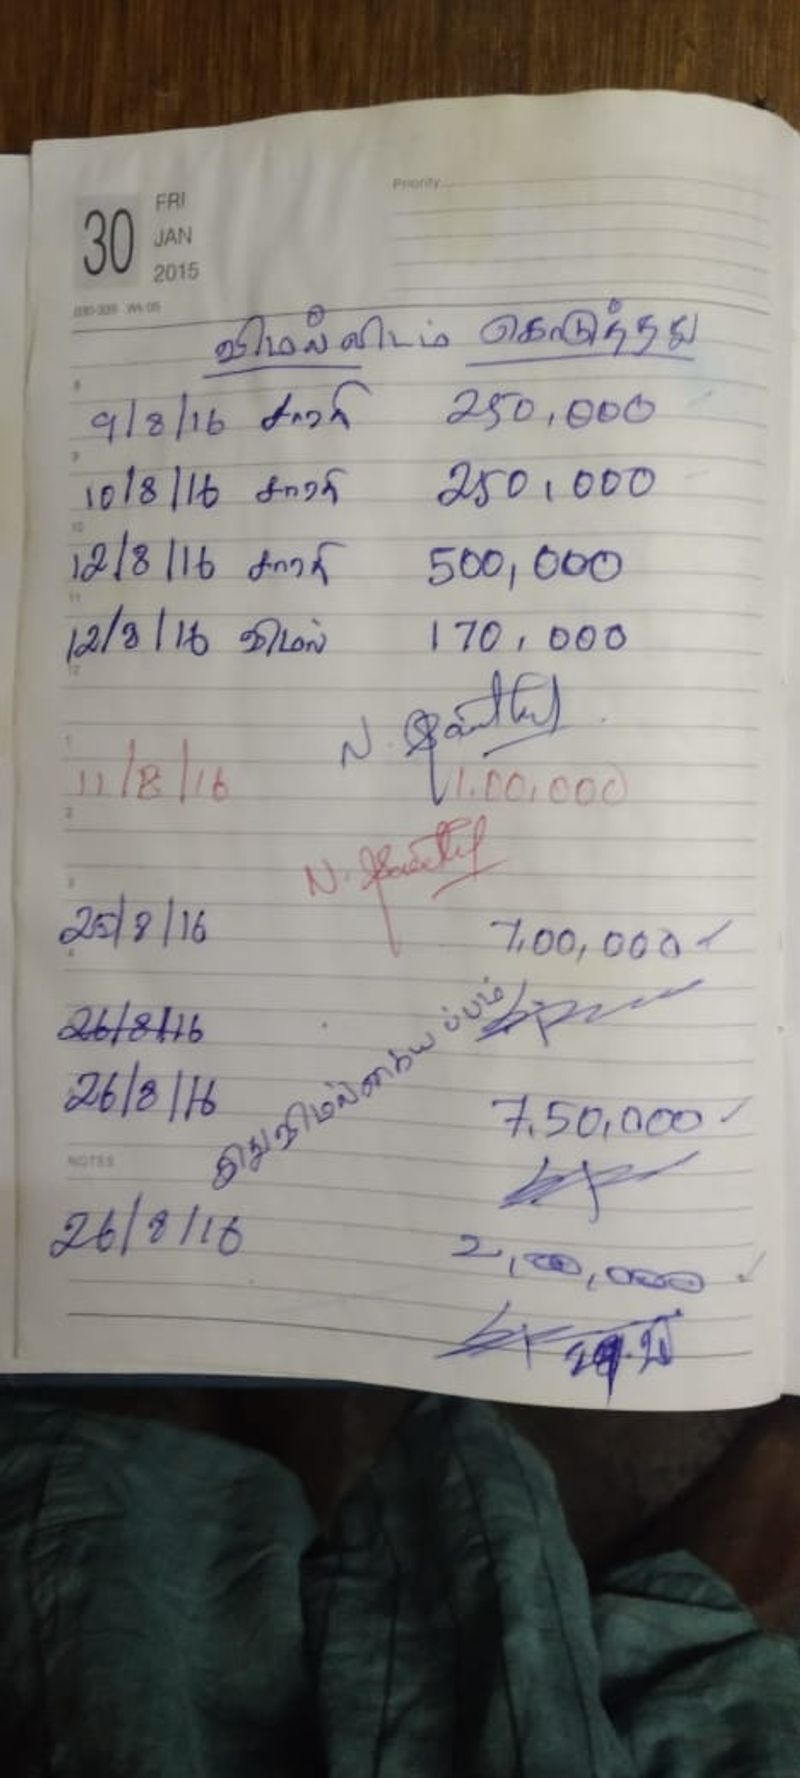 30
FRI
JAN
2015
Priority
030-335 Wk 05
விமல்விடம் கொடுத்தது
8
9/8/16 சாரதி 250,000
9
10/8/16 சாரதி 250,000
10
12/8/16 சாரதி 500,000
11
12/8/16 விமல் 170,000
12
N.
1
11/8/16 1,00,000
2
N.
3
25/8/16 7,00,000 ✓
4
26/8/16
26/8/16 7,50,000 ✓
இது விமல்
NOTES
26/8/16 2,00,000 ✓